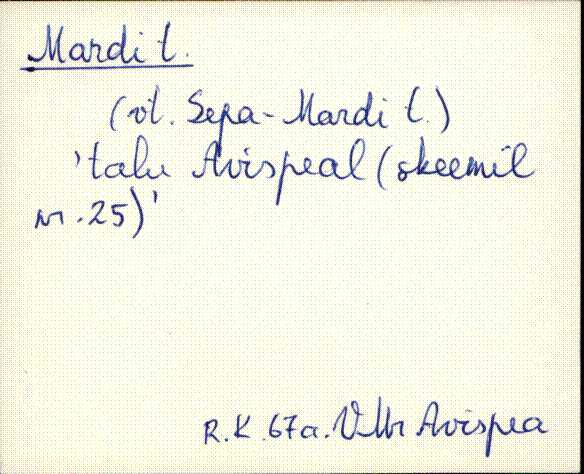 Mardi t.
(vt. Sepa-Mardi t.)
'talu Avispeal (skeemil
nr. 25)'
R.K. 67a. VMr Avispea